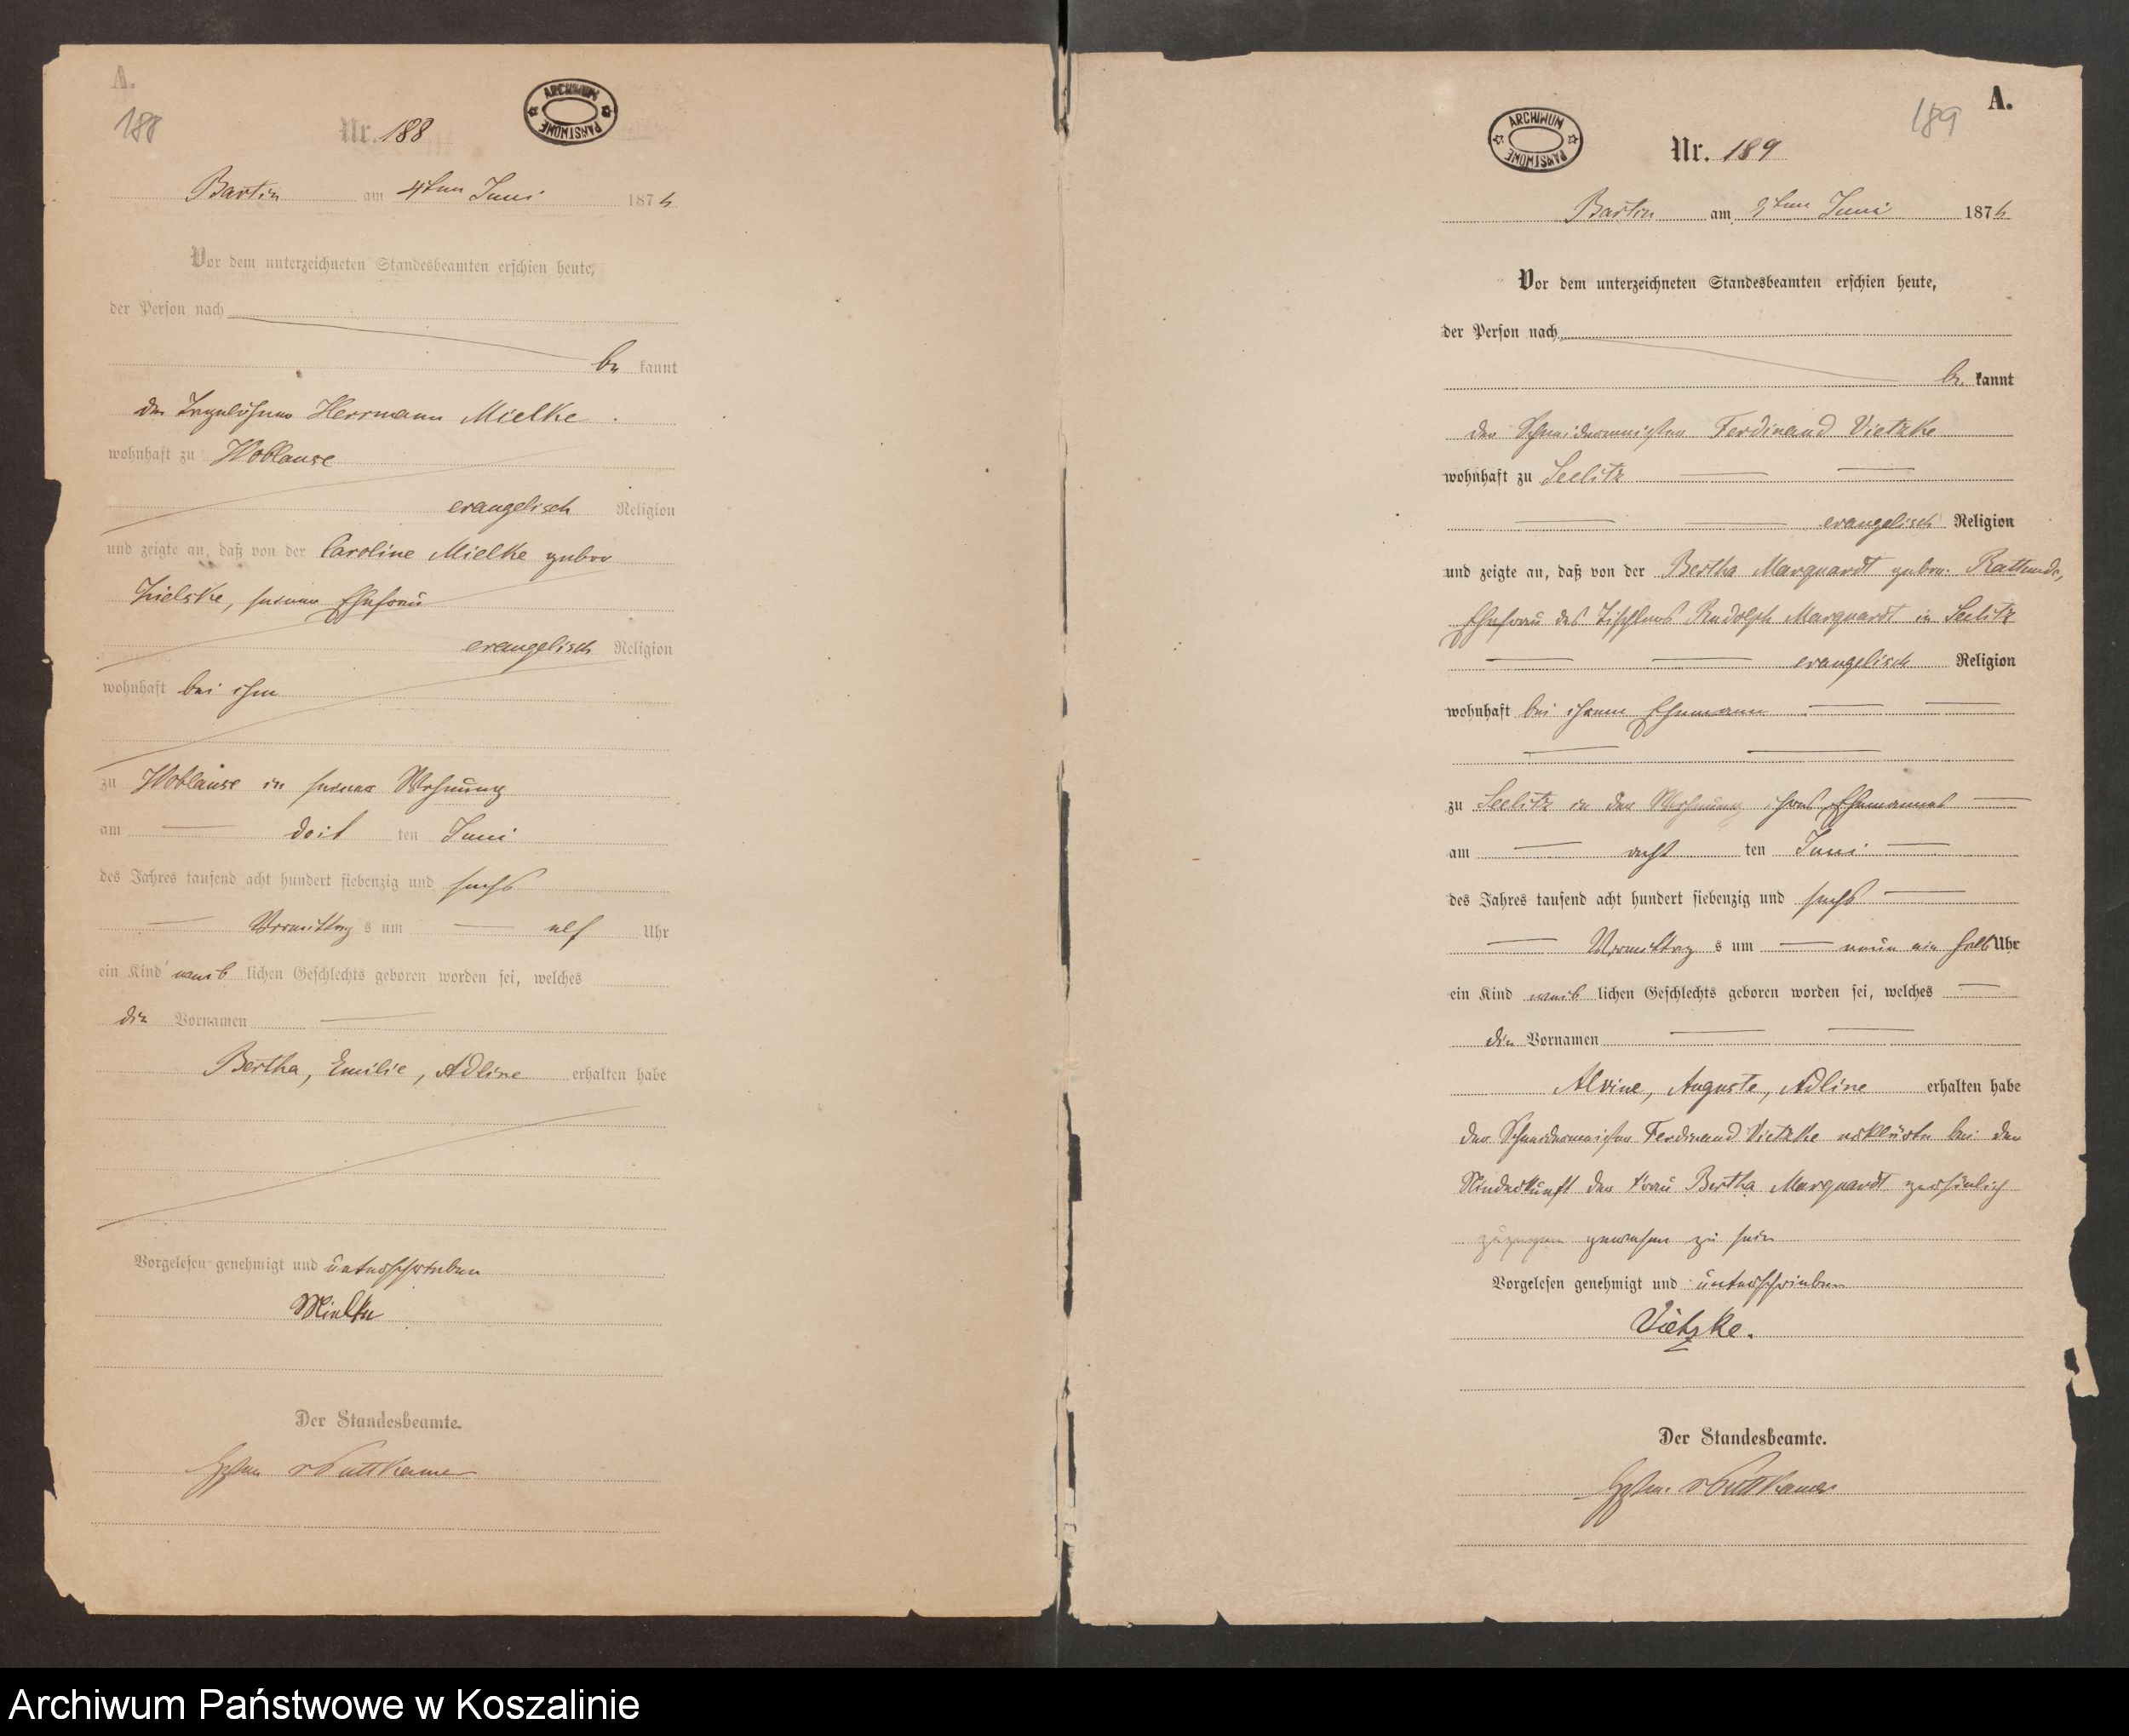 A.
188
Nr. 188
ARCHIWUM PAŃSTWOWE
Bartin am 4ten Juni 1876
Vor dem unterzeichneten Standesbeamten erschien heute,
der Person nach
be kannt
der Tagelöhner Herrmann Mielke
wohnhaft zu Woblanse
evangelisch Religion
und zeigte an, daß von der Caroline Mielke gebor
Zielske, seiner Ehefrau
evangelisch Religion
wohnhaft bei ihm
zu Woblanse in seiner Wohnung
am drit ten Juni
des Jahres tausend acht hundert siebenzig und sechs
Vormittag s um elf Uhr
ein Kind weib lichen Geschlechts geboren worden sei, welches
die Vornamen
Bertha, Emilie, Adline erhalten habe
Vorgelesen genehmigt und unterschrieben
Mielke
Der Standesbeamte.
v Puttkamer
A.
189
ARCHIWUM PAŃSTWOWE
Nr. 189
Bartin am 9ten Juni 1876
Vor dem unterzeichneten Standesbeamten erschien heute,
der Person nach
be kannt
der Schneidermeister Ferdinand Vietzke
wohnhaft zu Seelitz
evangelisch Religion
und zeigte an, daß von der Bertha Marquardt gebor. Rattunde,
Ehefrau des Tischlers Rudolph Marquardt in Seelitz
evangelisch Religion
wohnhaft bei ihrem Ehemann
zu Seelitz in der Wohnung ihres Ehemannes
am ach ten Juni
des Jahres tausend acht hundert siebenzig und sechs
Vormittag s um neun ein halb Uhr
ein Kind weib lichen Geschlechts geboren worden sei, welches
die Vornamen
Alvine, Auguste, Adline erhalten habe
Der Schneidermeister Ferdinand Vietzke erklärte bei der
Niederkunft der Frau Bertha Marquardt persönlich
zugegen gewesen zu sein
Vorgelesen genehmigt und unterschrieben
Vietzke.
Der Standesbeamte.
v Puttkamer
Archiwum Państwowe w Koszalinie